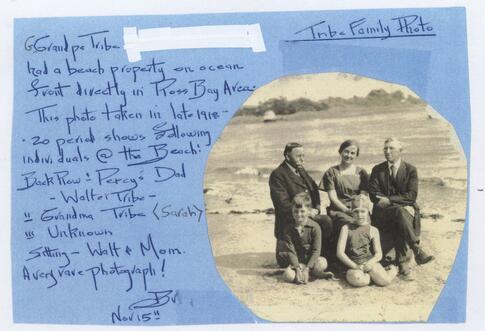 GGrandpa Tribe
Tribe Family Photo
had a beach property on ocean
front directly in Ross Bay Area.
This photo taken in late 1918-
-20 period shows following
individuals @ the Beach:
Back Row: Percy's Dad
- Walter Tribe -
" Grandma Tribe (Sarah)
" Unknown
Sitting - Walt & Mom.
A very rare photograph!
Nov 15"